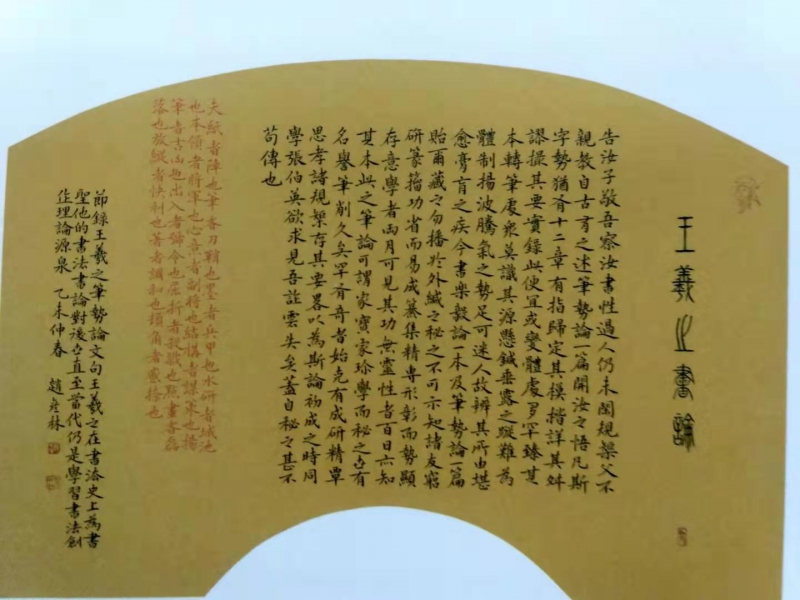 王羲之書論
告汝子敬吾察汝書性過人仍未閑規榘父不
親教自古有之述筆勢論一篇開汝之悟凡斯
字勢猶有十二章有指歸定其模揩詳其舛
謬撮其要實録此便宜或變體處多罕臻其
本轉筆處衆莫識其源懸鍼垂露之蹤難為
體制揚波騰氣之勢足可迷人故辨其所由堪
愈膏肓之疾今書樂毅論一本及筆勢論一篇
貽爾藏之勿播於外緘之秘之不可示知諸友窮
研篆籀功省而易成纂集精專形彰而勢顯
存意學者兩月可見其功無靈性者百日亦知
其本此之筆論可謂家寶家珍學而秘之世有
名譽筆削久矣罕有奇者始克有成研精覃
思考諸規榘存其要畧以為斯論初成之時同
學張伯英欲求見吾詐雲失矣蓋自秘之甚不
苟傳也
夫紙者陣也筆者刀鞘也墨者兵甲也水研者城池
也本領者將軍也心意者副將也結構者謀策也揚
筆者吉凶也出入者號令也屈折者殺戮也點畫者磊
落也放縱者快利也著者調和也頓角者蹙捺也
節録王羲之筆勢論文句王羲之在書法史上為書
聖他的書法書論對後世直至當代仍是學習書法創
作理論源泉 乙未仲春 趙彦林